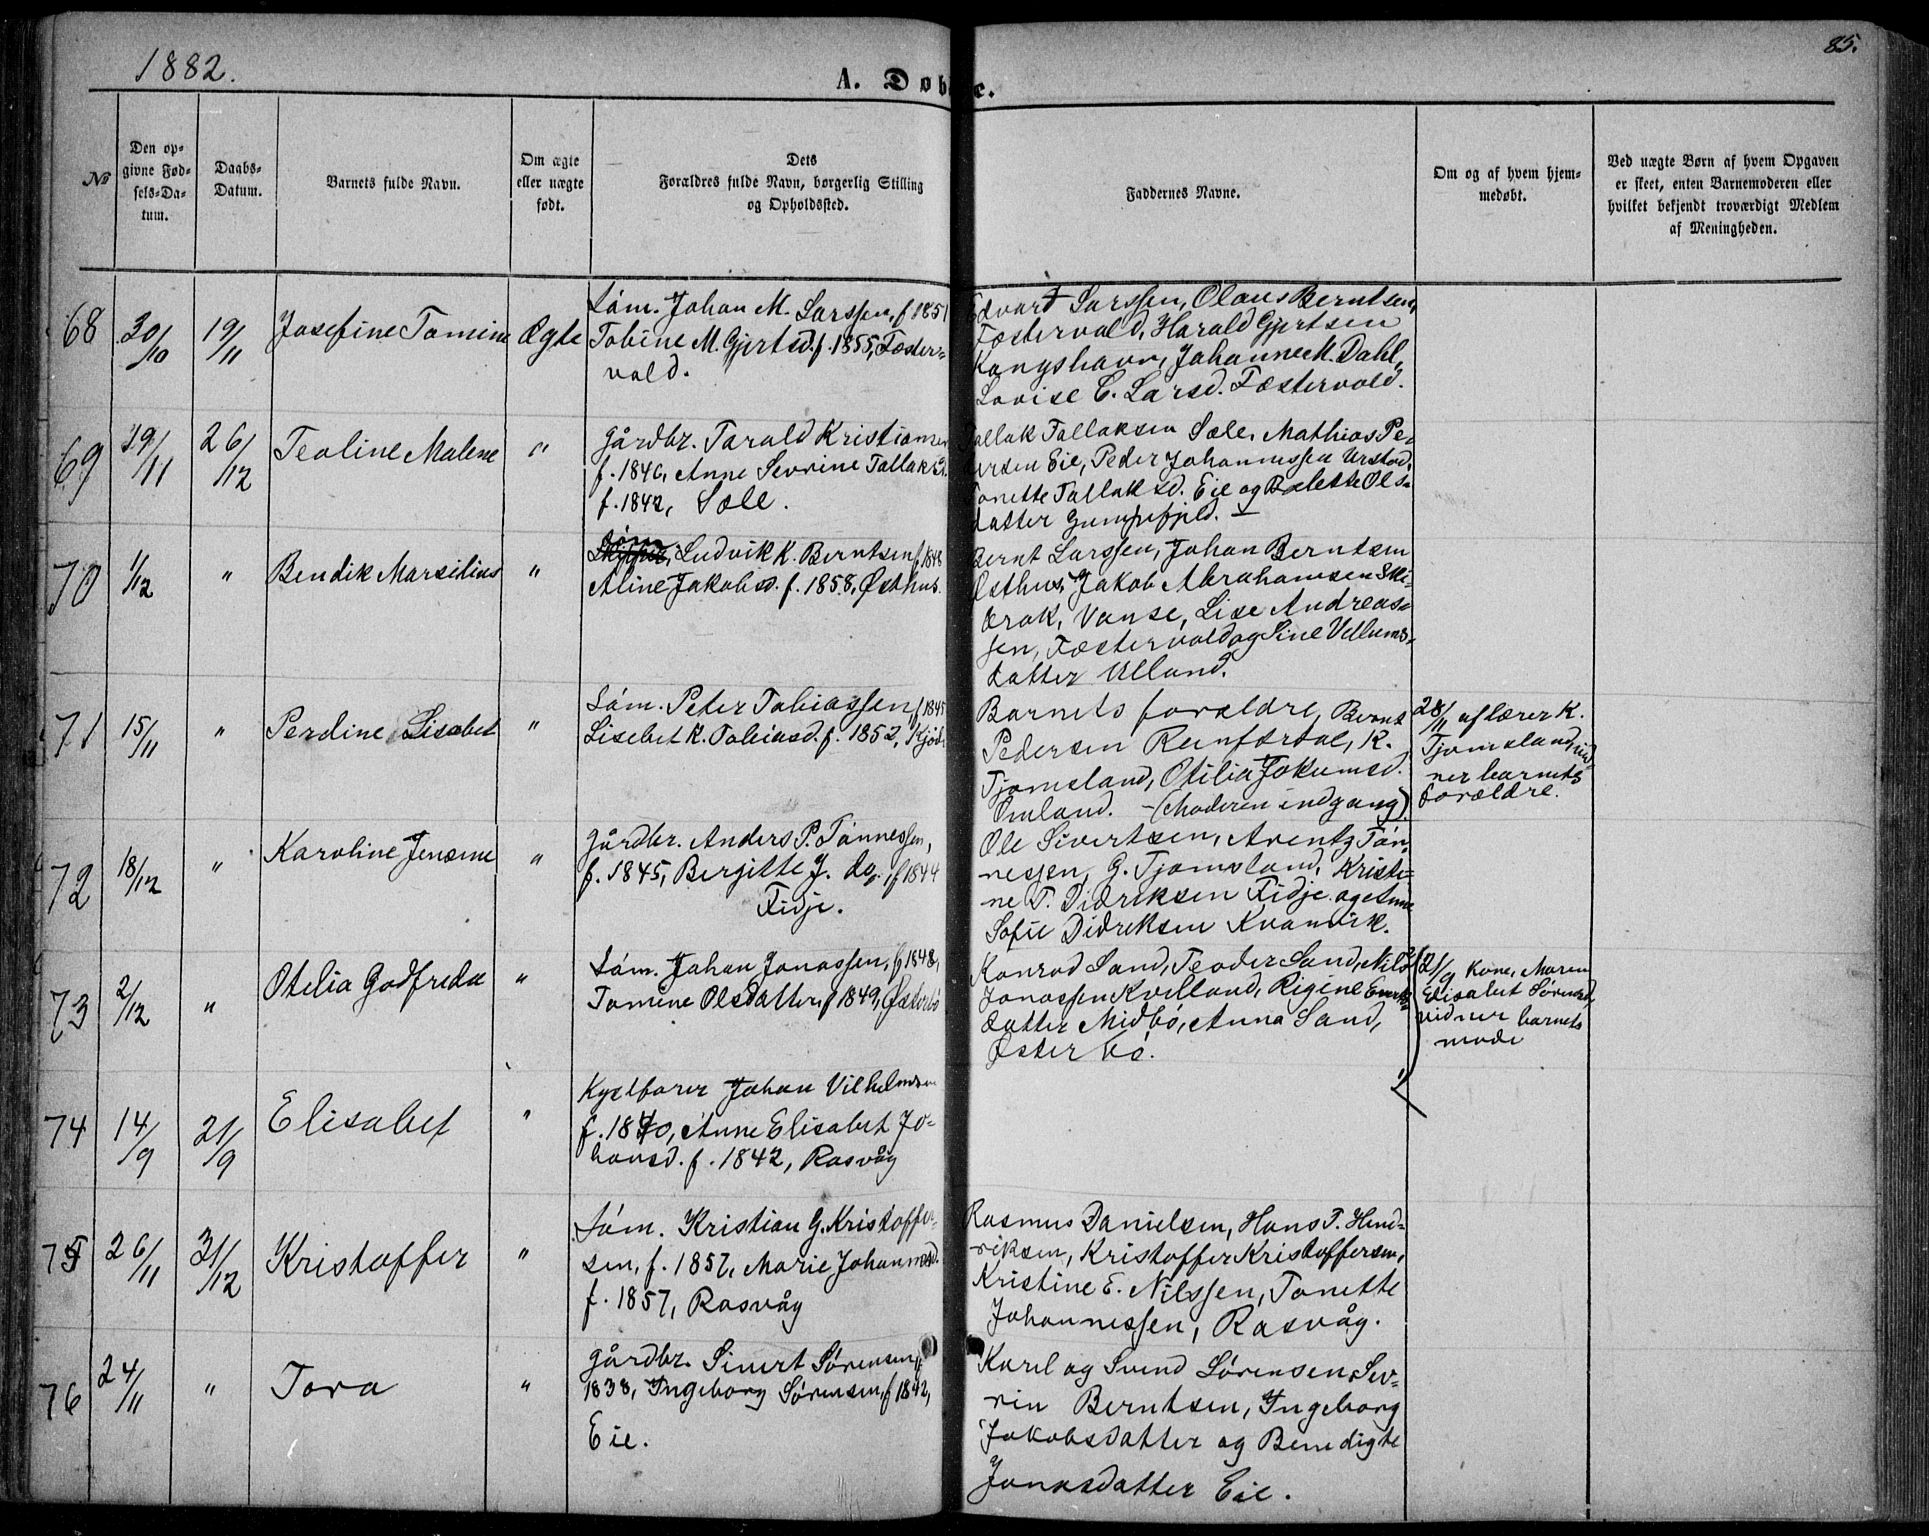 1882.
85.
A. Døb
e.
No
Den op-
givne Fød-
sels-Da-
tum.
Daabs-
Datum.
Barnets fulde Navn.
Om ægte
eller uægte
født.
Dets
Forældres fulde Navn, borgerlig Stilling
og Opholdssted.
Faddernes Navne.
Om og af hvem hjem-
medøbt.
Ved uægte Børn af hvem Opgaven
er skeet, enten Barnemoderen eller
hvilket bekjendt troværdigt Medlem
af Menigheden.
68
30/10
19/11
Josefine Tomine
Ægte
Søm. Johan M. Larssen, f 1851
Tobine M. Gjertsd. f. 1855, Foster-
vold.
Edvart Larssen, Olaus Berntsen,
Fæstervold, Harald Gjertsen
Kongshavn, Johanne M. Dahl,
Lovise C. Larsd. Fæstervold.
69
19/11
26/12
Teoline Malene
"
Gårdbr. Tarald Kristiansen
f. 1846, Anne Sevrine Tallaksd.
f. 1842, Sæle.
Tallak Tallaksen Sæle, Mathias Pe-
dersen Eie, Peder Johannessen Urstad,
Tonette Tallaksd. Eie og Bolette Ols-
datter Gumpefjeld.
70
1/12
"
Bendik Marsilius
"
Søm. Ludvik K. Berntsen f 1848
Aline Jakobsd. f. 1858, Østhus.
Bernt Larssen, Johan Berntsen
Østhus, Jakob Abrahamsen Ski-
brak, Vanse, Lise Andreas-
sen, Fæstervold og Sine Villums-
datter Ulland.
71
15/11
"
Perdine Lisabet
"
Søm. Peter Tobiassen, f 1845
Lisebet K. Tobiasd. f. 1852,
Barnets forældre, Bernt
Pedersen Reinfærdal, K.
Tjomsland, Otilia Jokumsd.
Omland. - (Moderen indgang)
28/11 af lærer K.
Tjomsland, vid-
ner barnets
forældre.
72
18/12
"
Karoline Jensine
"
Gårdbr. Anders P. Tønnessen,
f. 1845, Bergitte J. do, f 1844
Fidje.
Ole Sivertsen, Arentz Tøn-
nessen, G. Tjomsland, Kristi-
ne T. Didriksen Fidje og
Sofie Didriksen Kvanvik.
73
2/12
"
Otelia Godfreda
"
Søm. Johan Jonassen, f 1848,
Tomine Olsdatter, f 1849, Østerbø
Konrad Sand, Teodor Sand, Nils
Jonassen Kvelland, Rigine
datter Midbø, Anna Sand,
Østerbø.
21/9 Kone, Maren
Elisabet Sørensd,
vidner barnets
mode
74
14/9
21/9
Elisabet
"
Kystfarer Johan Vilhelmsen
f. 1840, Anne Elisabet Jo-
hansd. f. 1842, Rasvåg
75
26/11
31/12
Kristoffer
"
Søm. Kristian G. Kristoffer-
sen, f. 1857, Marie Johannesd.
f. 1857, Rasvåg
Rasmus Danielsen, Hans T. Hend-
riksen, Kristoffer Kristoffersen,
Kristine E. Nilssen, Tonette
Johannessen, Rasvåg.
76
24/11
"
Tora
"
Gårdbr. Sivert Sørensen, f
1838, Ingeborg Sørensen, f 1842,
Eie.
Karl og Svend Sørensen, Sev-
rin Berntsen, Ingeborg
Jakobsdatter og Benedigte
Jonasdatter Eie.